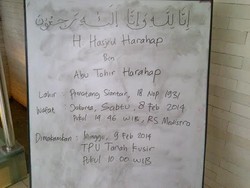 إنا لله وإنا إليه راجعون
H Hasjrul Harahap
Bin
Abu Tohir Harahap
Lahir : Pematang Siantar, 18 Nop 1931
Wafat : Jakarta, Sabtu 8 Feb 2014
Pukul 14.46 WIB, RS Medistra
Dimakamkan : Minggu, 9 Feb 2014
TPU Tanah Kusir
Pukul 10.00 WIB